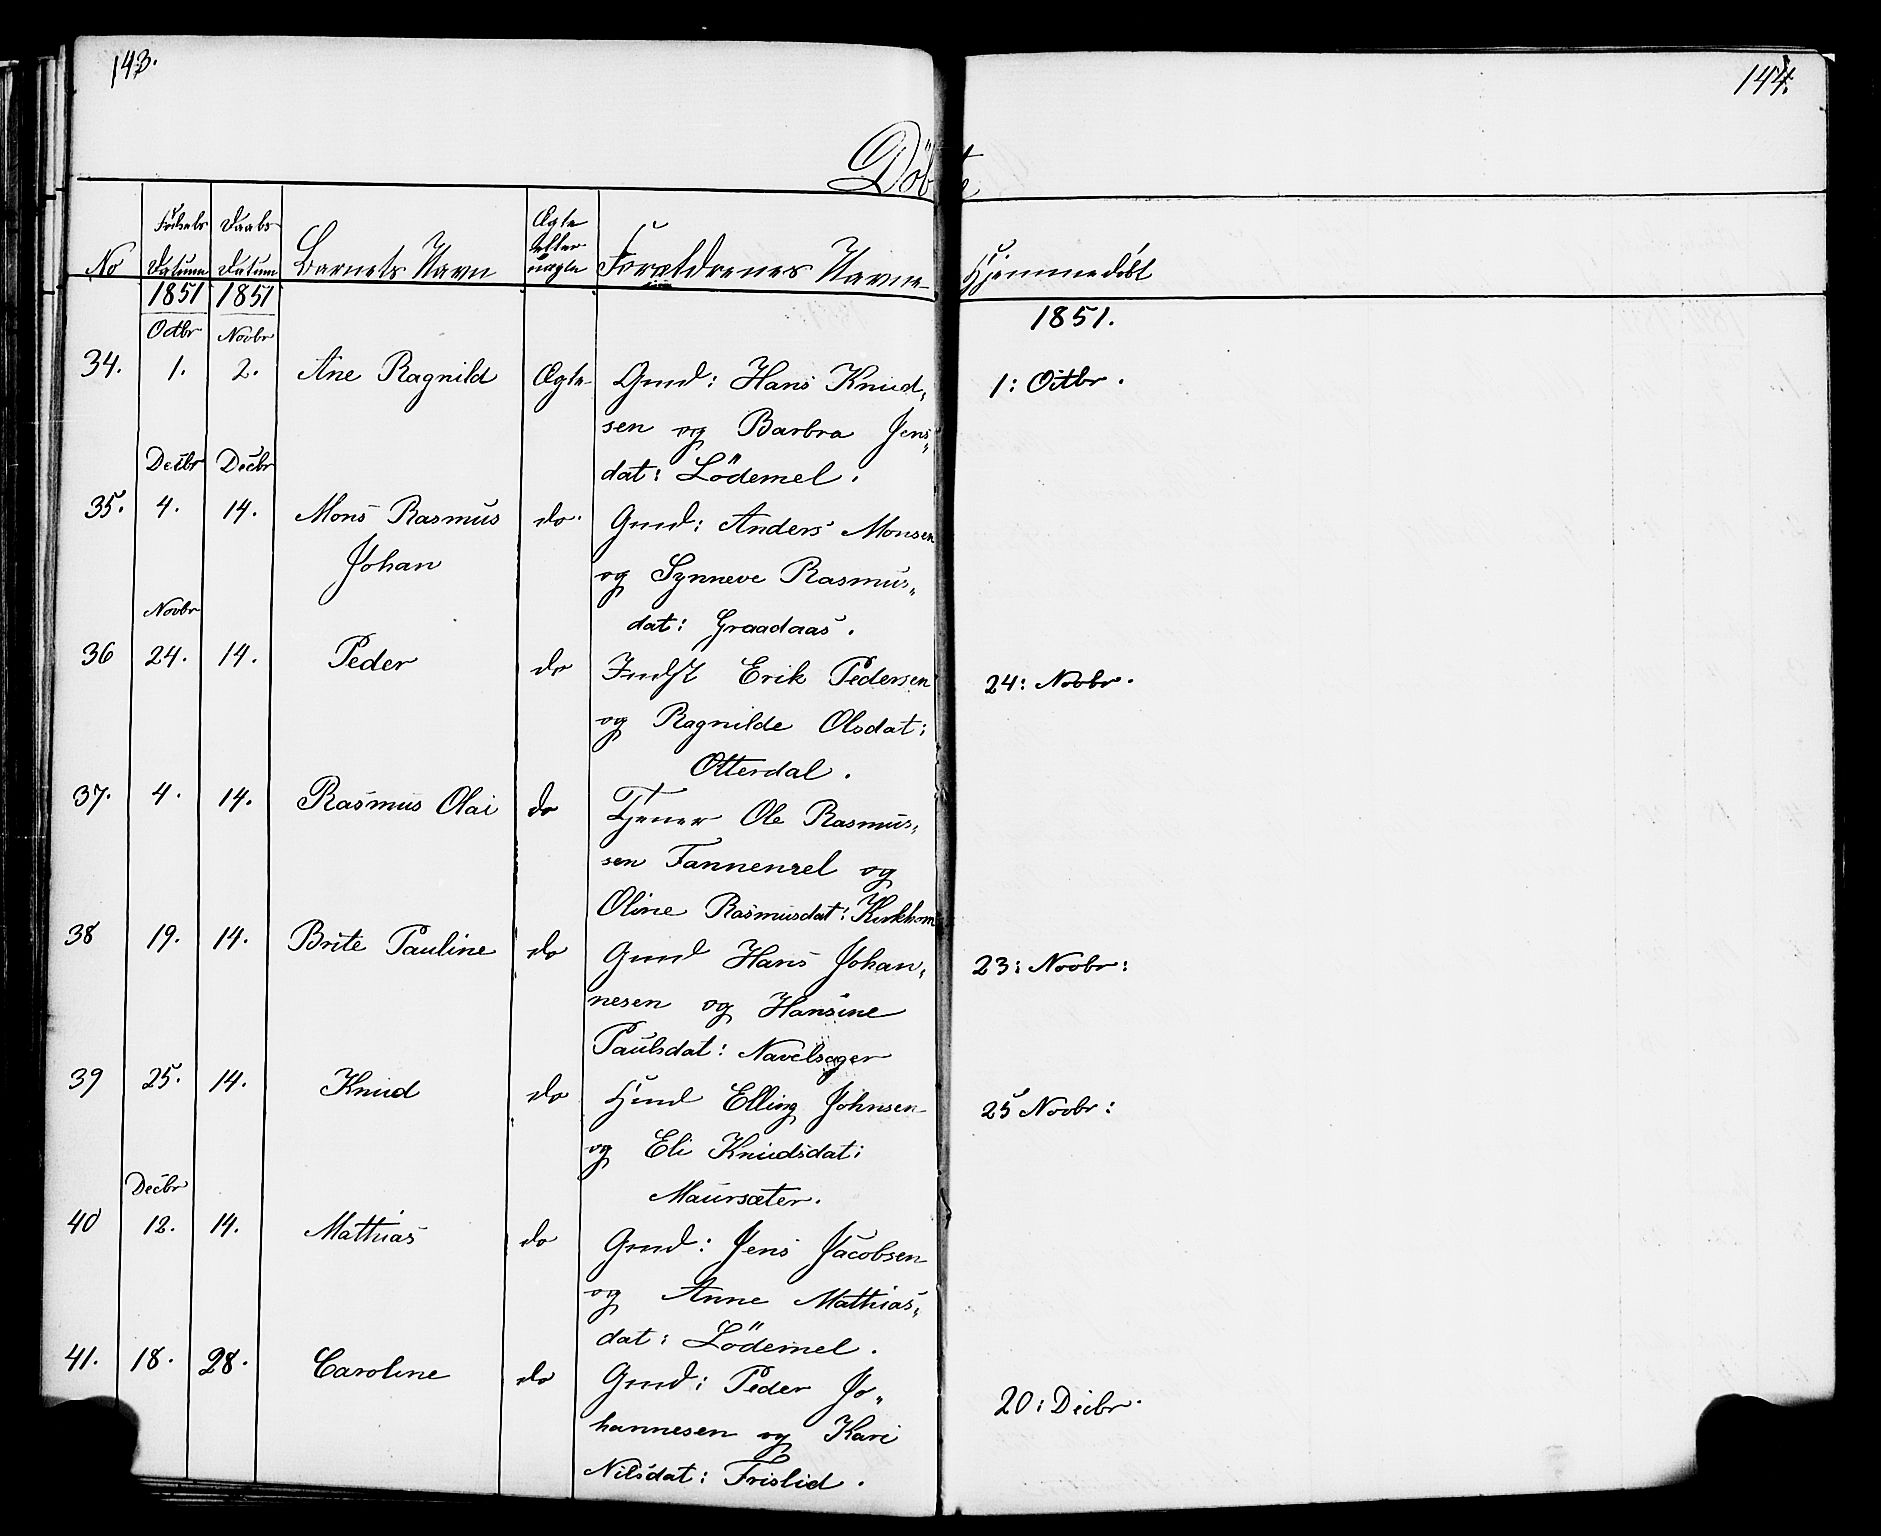 143.
144.
Döbte
No
Födsels Datum
Daabs Datum
Barnets Navn
Ægte eller uægte
Forældrenes Navne
Hjemmedöbt
1851 1851 1851.
Octbr Novbr
34. 1. 2. Ane Ragnild Ægte Gmd: Hans Knud„ 1: Octbr.
sen og Barbra Jens„
Decbr Decbr dat: Lödemel.
35. 4. 14. Mons Rasmus do. Gmd: Anders Monsen
Johan og Synneve Rasmus„
Novbr dat: Graadaas.
36 24. 14. Peder do Indst Erik Pedersen 24: Novbr.
og Ragnilde Olsdat:
Otterdal.
37. 4. 14. Rasmus Olai do Tjener Ole Rasmus„
sen Tannenzel og
Oline Rasmusdat: Kirkhorn
38 19. 14. Brite Pauline do Gmd Hans Johan„ 23: Novbr:
nesen og Hansine
Paulsdat: Navelsager
39 25. 14. Knud do Hmd Elling Johnsen 25 Novbr:
og Eli Knudsdat:
Decbr Maursæter.
40 12. 14. Mathias do Gmd: Jens Jacobsen
og Anne Mathias„
dat: Lödemel.
41. 18. 28. Caroline do Gmd: Peder Jo„ 20: Decbr.
hannesen og Kari
Nilsdat: Frislid.